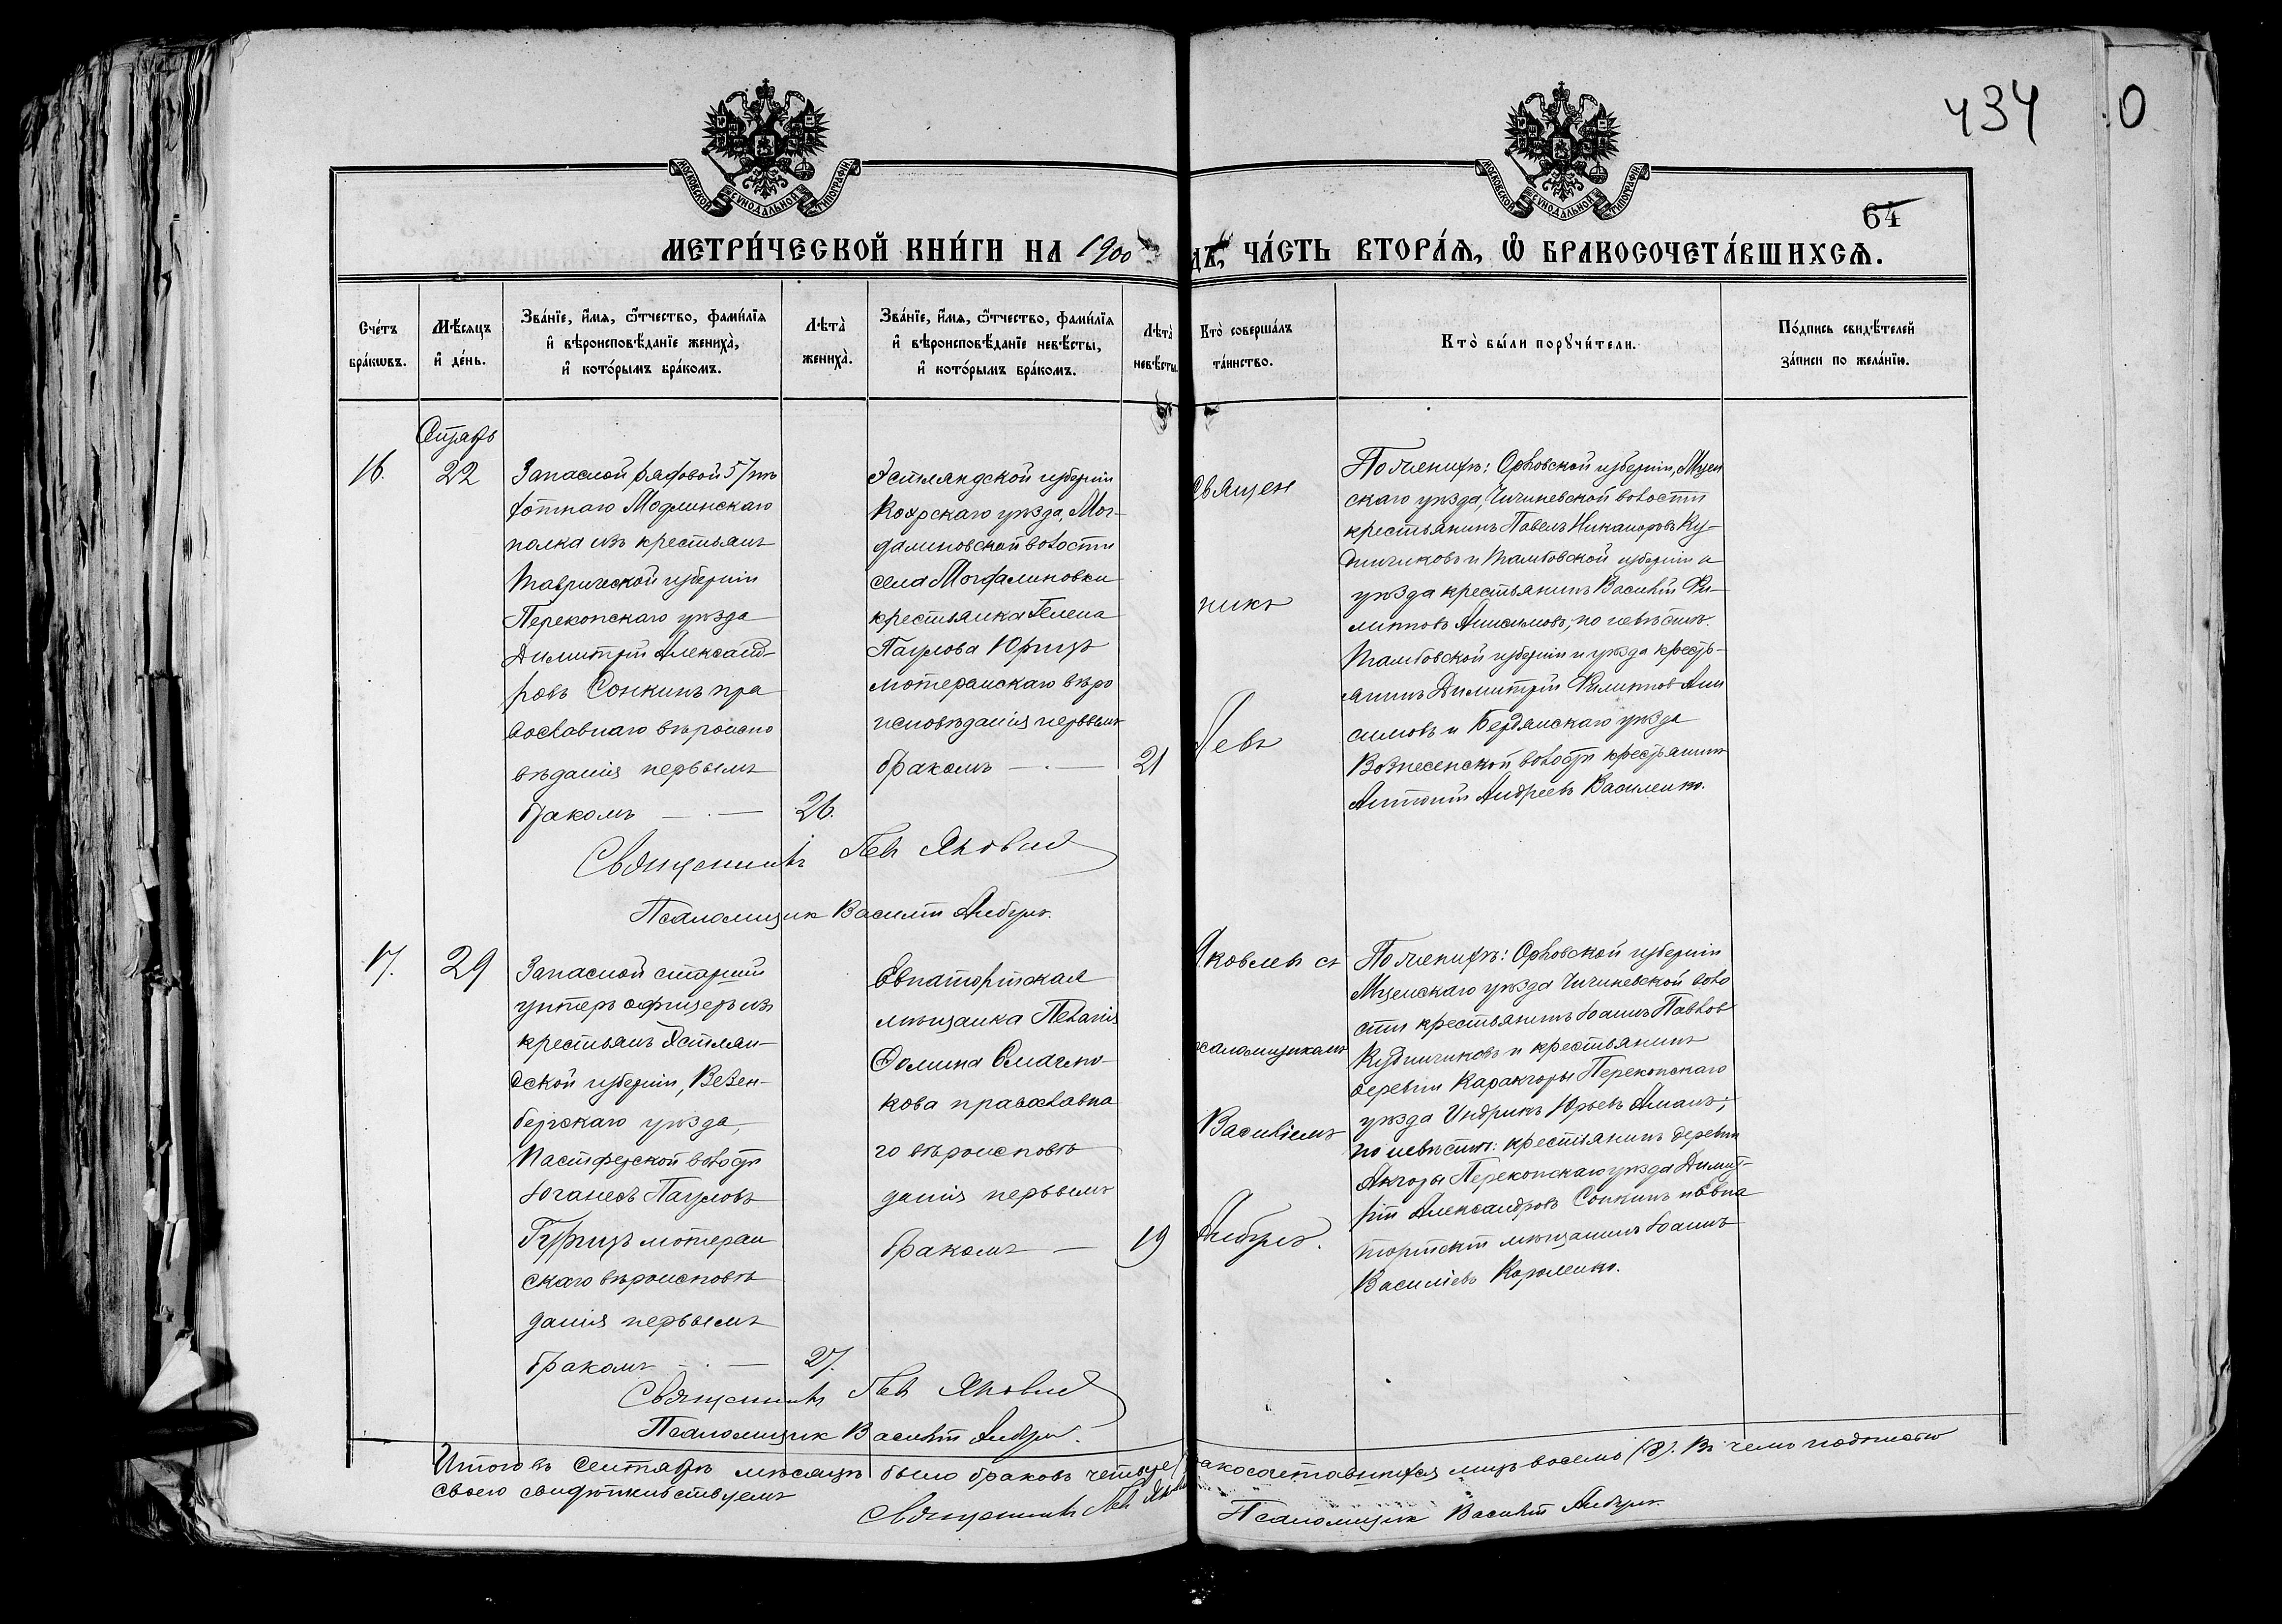 434
0
МОСКОВСКОЙ СѴНОДАЛЬНОЙ ТИПОГРАФІИ
МОСКОВСКОЙ СѴНОДАЛЬНОЙ ТИПОГРАФІИ
64
МЕТРИ́ЧЕСКОЙ КНИ́ГИ НА 1900
ДЪ, ЧА́СТЬ ВТОРА́Я, Ѽ БРАКОСОЧЕТА́ВШИХСЯ.
Сче́тъ бра́кѡвъ.
Мѣ́сяцъ и҆ де́нь.
Зва́нїе, и҆́мя, ѻ҆́тчество, фами́лїя и҆ вѣроисповѣ́данїе жениха̀, и҆ кото́рымъ бра́комъ.
Лѣта̀ жениха̀.
Зва́нїе, и҆́мя, ѻ҆́тчество, фами́лїя и҆ вѣроисповѣ́данїе невѣ́сты, и҆ кото́рымъ бра́комъ.
Лѣта̀ невѣ́сты.
Кто̀ соверша́лъ та́инство.
Кто̀ бы́ли порꙋчи́тели.
По́дпись свидѣ́телей за́писи по жела́нїю.
Сентябрь
16.
22
Запасной рядовой 57 пѣ
хотнаго Модлинскаго
полка изъ крестьянъ
Таврической губерніи
Перекопскаго уѣзда
Димитрій Александ-
ровъ Сонкинъ пра
вославнаго вѣроиспо
вѣданія первымъ
бракомъ
26.
Эстляндской губерніи
уѣзда, Маг-
далиновской волости
села Магдалиновки
крестьянка Гелена
Паулова Юрицъ
лютеранскаго вѣро
исповѣданія первымъ
бракомъ
21
Священ
никъ
Левъ
По женихѣ: Орловской губерніи, Мцен
скаго уѣзда, волости
крестьянинъ Павелъ Никаноровъ Ку-
и Тамбовской губерніи и
уѣзда крестьянинъ Василій Фи-
липповъ Анисимовъ; по невѣстѣ:
Тамбовской губерніи и уѣзда кресть-
янинъ Димитрій Филипповъ Ани
симовъ и Бердянскаго уѣзда
Вознесенской волости крестьянинъ
Антоній Андреевъ Василенко.
Священникъ Левъ Яковлев
Псаломщик Василій
17.
29
Запасной старшій
унтеръ офицеръ изъ
крестьянъ Эстлян-
дской губерніи, Везен-
бергскаго уѣзда,
волости
Юганесъ Пауловъ
лютеран
скаго вѣроисповѣ
данія первымъ
бракомъ
27.
Евпаторійская
мѣщанка Пелагія
Фомина
кова православна
го вѣроисповѣ
данія первымъ
бракомъ
19
Яковлев съ
псаломщикомъ
Василіемъ
По женихѣ: Орловской губерніи
Мценскаго уѣзда воло
сти крестьянинъ Іоаннъ Павлов
и крестьянинъ
деревни Перекопскаго
уѣзда Индрикъ Юрьевъ
по невѣстѣ: крестьянинъ деревни
Перекопскаго уѣзда Димит-
рій Александровъ Сонкинъ и Евпа
торійскій мѣщанинъ Іоаннъ
Василіевъ
Священникъ Левъ Яковлев
Псаломщик Василій
Итого въ Сентябрѣ мѣсяцѣ было браковъ четыре
бракосочетавшихся лицъ восемь (8). Въ чемъ подписью
своею свидѣтельствуемъ
Священникъ Левъ
Псаломщик Василій